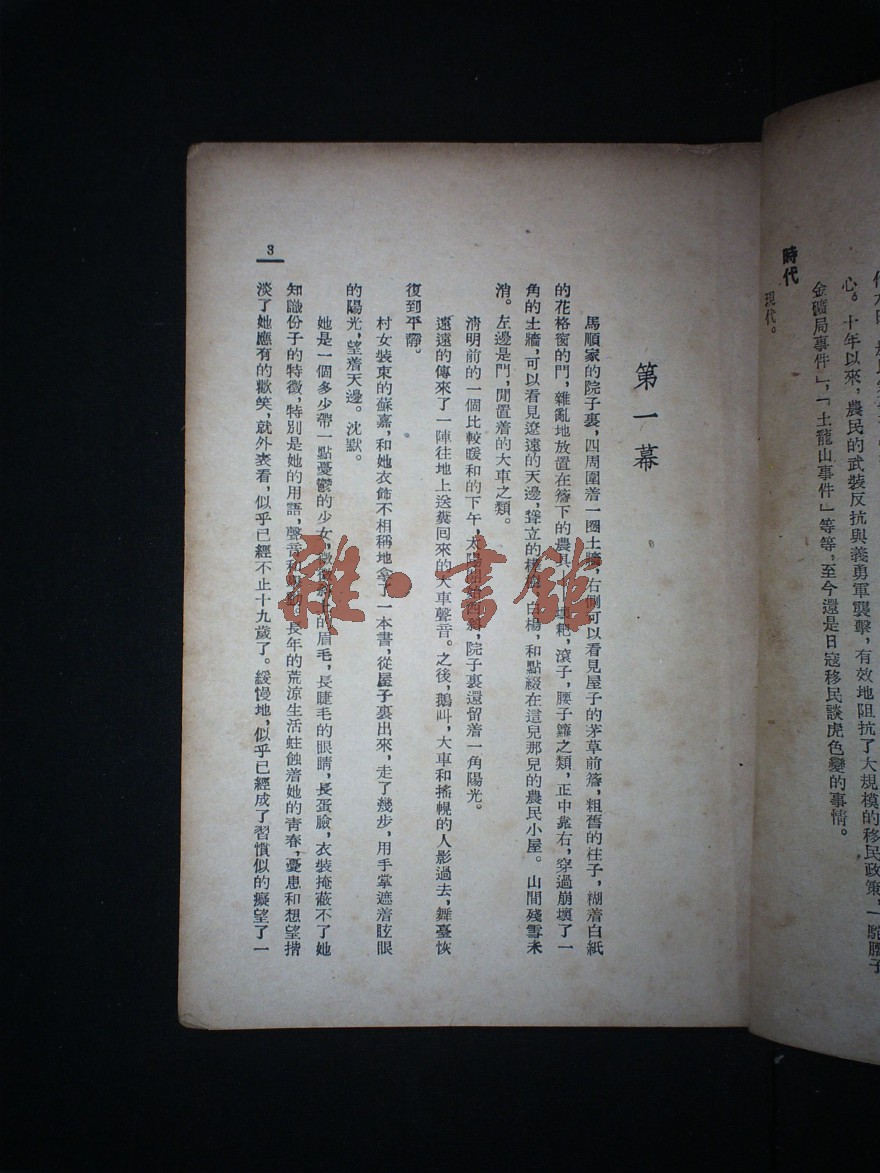 心。十年以來，農民的武裝反抗與義勇軍襲擊，有效地阻抗了大規模的移民政策，
金礦局事件」，「土龍山事件」等等，至今還是日寇移民談虎色變的事情。
時代
現代。
第一幕
馬順家的院子裏，四周圍着一圈土牆，右側可以看見屋子的茅草前簷，粗舊的柱子，糊着白紙
的花格窗的門，雜亂地放置在簷下的農具，耙，滾子，腰子籮之類，正中靠右，穿過崩壞了一
角的土牆，可以看見遼遠的天邊，聳立的 白楊，和點綴在這兒那兒的農民小屋。山間殘雪未
消。左邊是門，閒置着的大車之類。
清明前的一個比較暖和的下午，太陽 院子裏還留着一角陽光。
遠遠的傳來了一陣往地上送糞回來的大車聲音。之後，鵝叫，大車和搖幌的人影過去，舞臺恢
復到平靜。
村女裝束的蘇嘉，和她衣飾不相稱地拿了一本書，從屋子裏出來，走了幾步，用手掌遮着眩眼
的陽光，望着天邊。沈默。
她是一個多少帶一點憂鬱的少女，眉毛，長睫毛的眼睛，長蛋臉，衣裝掩蔽不了她
知識份子的特徵，特別是她的用語，聲音和 長年的荒涼生活蛀蝕着她的青春，憂患和想望揩
淡了她應有的歡笑，就外表看，似乎已經不止十九歲了。緩慢地，似乎已經成了習慣似的癡望了一
3
雜·書館